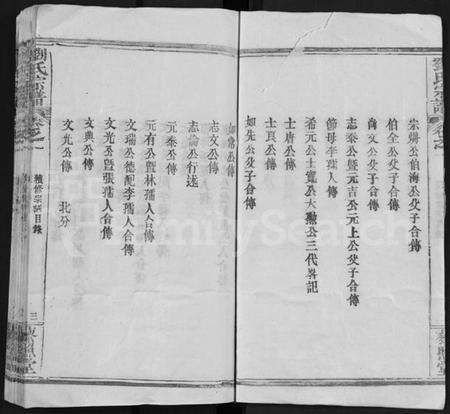 宗舜公伯海公父子合傳
伯全公父子合傳
尚文公父子合傳
志泰公暨元吉公元上公父子合傳
節母李孺人傳
希元公士寬公大勳公三代畧記
士唐公傳
士良公傳
如先公父子合傳
如常公傳
志文公傳
志倫公行述
元泰公傳
元有公暨林孺人合傳
文瑞公德配李孺人合傳
文光公暨張孺人合傳
文典公傳
文光公傳 北分
續修宗譜目錄
三
劉氏宗譜
FamilySearch